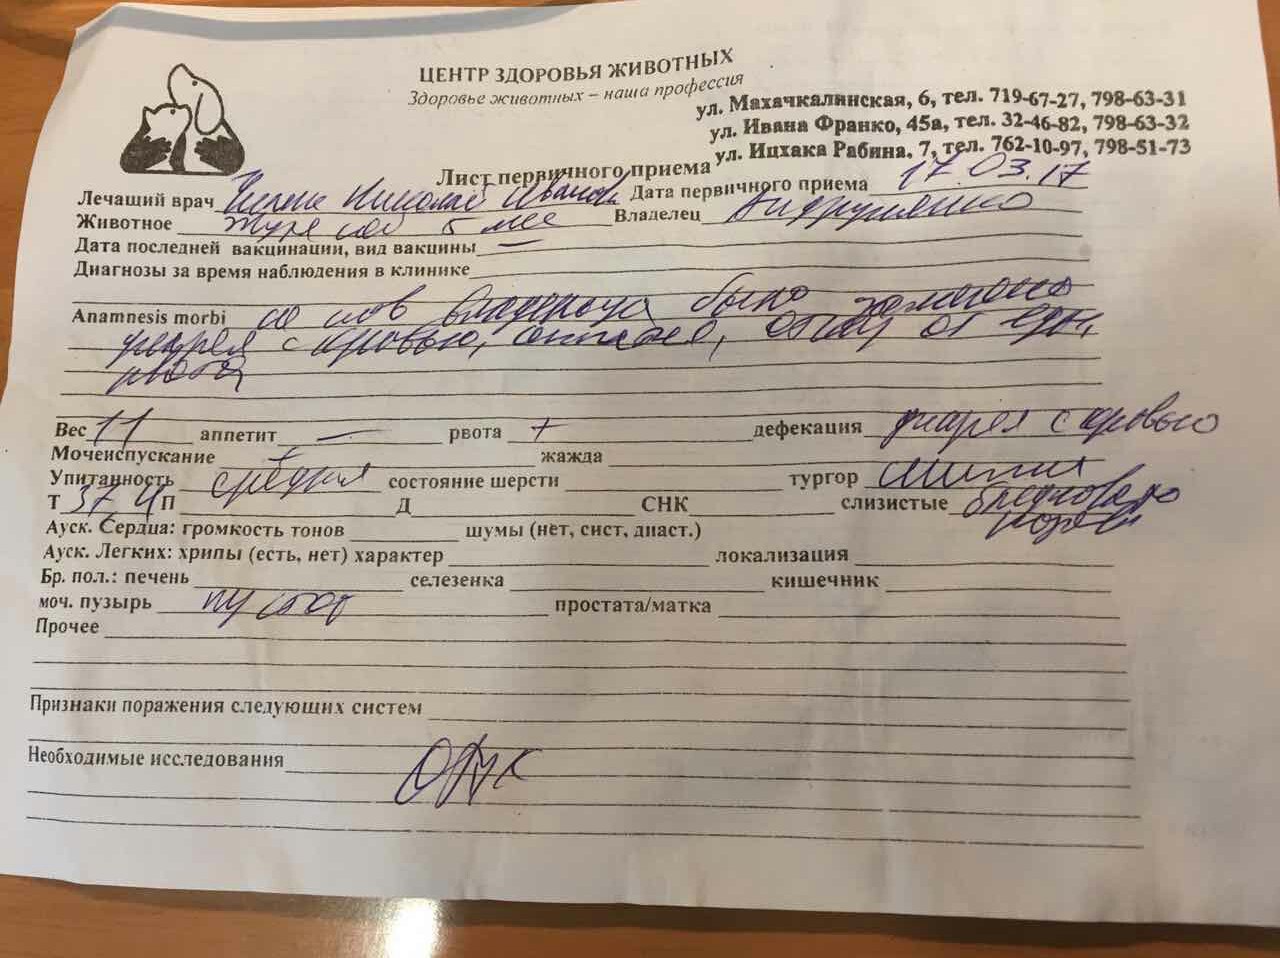 ЦЕНТР ЗДОРОВЬЯ ЖИВОТНЫХ
Здоровье животных – наша профессия
ул. Махачкалинская, 6, тел. 719-67-27, 798-63-31
ул. Ивана Франко, 45а, тел. 32-46-82, 798-63-32
ул. Ицхака Рабина, 7, тел. 762-10-97, 798-51-73
Лист первичного приема
Лечащий врач Николай Иванов Дата первичного приема 17.03.17
Животное 5 мес Владелец
Дата последней вакцинации, вид вакцины —
Диагнозы за время наблюдения в клинике
Anamnesis morbi со слов владельца было
диарея с кровью, отказ от еды,
рвота
Вес 11 аппетит — рвота + дефекация диарея с кровью
Мочеиспускание + жажда
Упитанность средняя состояние шерсти тургор
Т 37,4 П Д СНК слизистые бледновато
розов
Ауск. Сердца: громкость тонов шумы (нет, сист, диаст.)
Ауск. Легких: хрипы (есть, нет) характер локализация
Бр. пол.: печень селезенка кишечник
моч. пузырь пустой простата/матка
Прочее
Признаки поражения следующих систем
Необходимые исследования ОАК